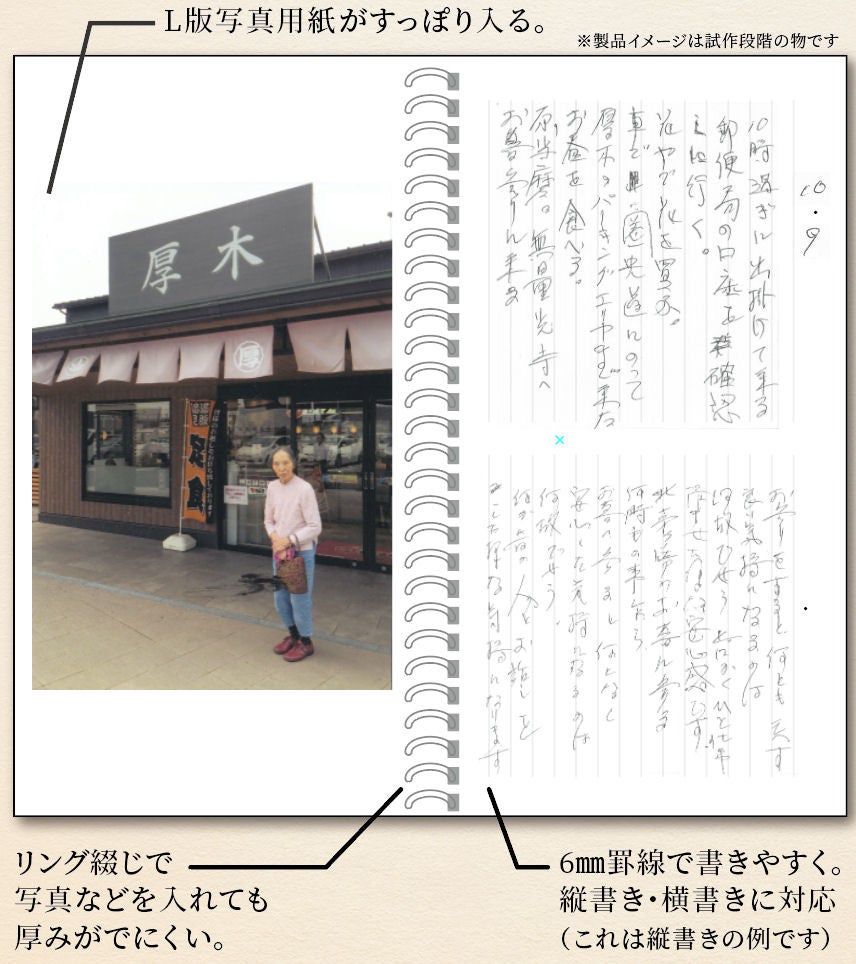 L版写真用紙がすっぽり入る。
※製品イメージは試作段階の物です
厚木
厚
10・9
10時過ぎに出掛けて来る
郵便局の口座を確認
しに行く。
花やで花を買ふ。
車で圏央道にのって
厚木のパーキングエリヤまで来た
お昼を食べる。
原当麻の無量光寺へ
お墓参りに来る
お参りをすると何とも云す
良い気持になるのは
何故でせう
安心感です
お墓に参る
何時もの事乍ら
お墓へ参ると何となく
安心した気持になるのは
何故でせう。
人とお話しを
した様な気持になります
リング綴じで
写真などを入れても
厚みがでにくい。
6㎜罫線で書きやすく。
縦書き・横書きに対応
（これは縦書きの例です）